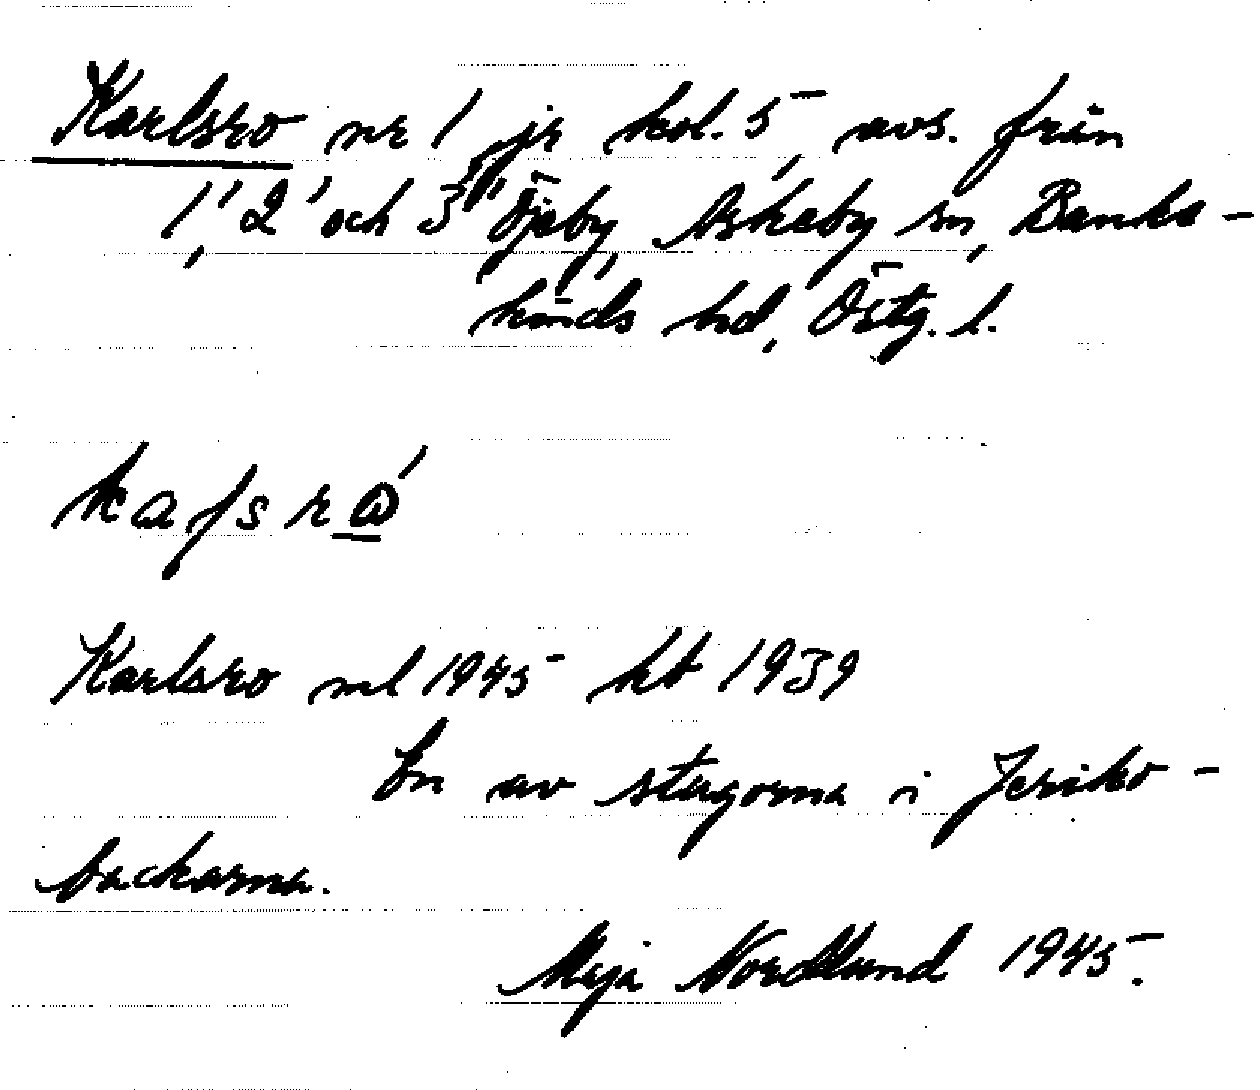 Karlsro nr 1, jr kol. 5, avs. från
1,' 2' och 3" Öjeby, Askeby sn, Banke-
kinds hd, Östg. l.
kaʃsrω´
Karlsro ml 1945 kb 1939
En av stugorna i Jeriko-
backarna.
Maja Nordlund 1945.